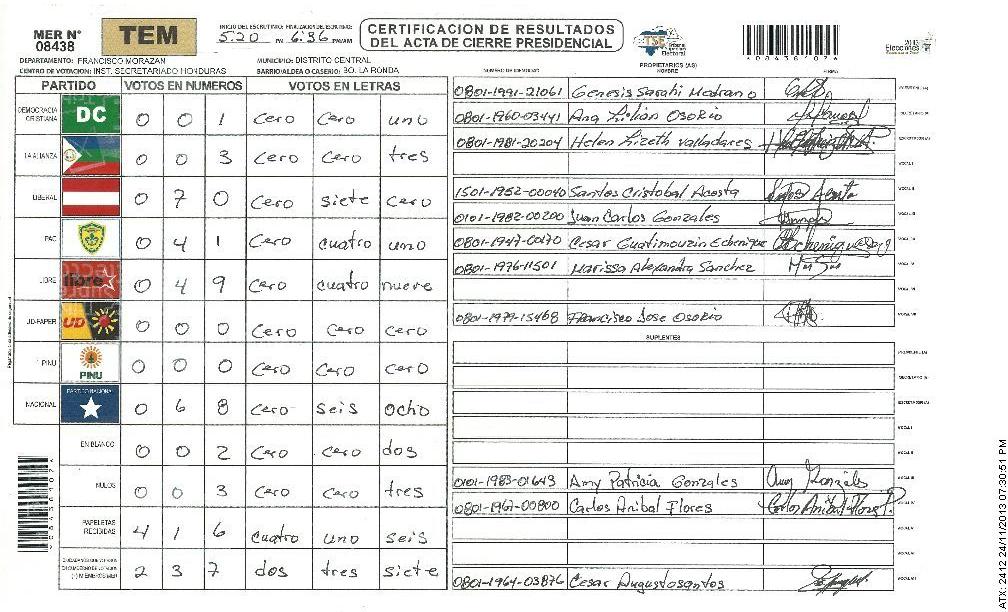 MER N° 08438
TEM
INICIO DEL ESCRUTINIO: FINALIZACIÓN DEL ESCRUTINIO:
5:20 PM 6:36 PM/AM
CERTIFICACION DE RESULTADOS
DEL ACTA DE CIERRE PRESIDENCIAL
TSE
Tribunal Supremo Electoral
* 0 8 4 3 8 1 0 7 *
2013 Elecciones
DEPARTAMENTO: FRANCISCO MORAZAN
MUNICIPIO: DISTRITO CENTRAL
CENTRO DE VOTACION: INST. SECRETARIADO HONDURAS
BARRIO/ALDEA O CASERIO: BO. LA RONDA
NUMERO DE IDENTIDAD
PROPIETARIOS (AS)
NOMBRE
FIRMA
PARTIDO VOTOS EN NUMEROS VOTOS EN LETRAS
DEMOCRACIA CRISTIANA DC 0 0 1 cero cero uno
LA ALIANZA 0 0 3 cero cero tres
LIBERAL 0 7 0 cero siete cero
PAC 0 4 1 cero cuatro uno
LIBRE libre 0 4 9 cero cuatro nueve
UD-FAPER UD 0 0 0 cero cero cero
PINU PINU 0 0 0 cero cero cero
NACIONAL PARTIDO NACIONAL 0 6 8 cero seis ocho
EN BLANCO 0 0 2 cero cero dos
NULOS 0 0 3 cero cero tres
PAPELETAS RECIBIDAS 4 1 6 cuatro uno seis
2 3 7 dos tres siete
0801-1991-21061 Genesis Sarahi Madrano
0801-1960-03441 Ana Lilian Osorio
0801-1981-20204 Helen Lizeth Valladares
1501-1952-00040 Santos Cristobal Acosta
0101-1982-00200 Juan Carlos Gonzales
0801-1947-00170 Cesar Guatimouzin Echenique
0801-1976-11501 Marissa Alexandra Sanchez
0801-1979-15468 Francisco Jose Osorio
SUPLENTES
0101-1983-01643 Amy Patricia Gonzales
0801-1967-00800 Carlos Anibal Flores
0801-1964-03876 Cesar Augusto santos
* 0 8 4 3 8 1 0 2 *
ATX: 2412 24/11/2013 07:30:51 PM